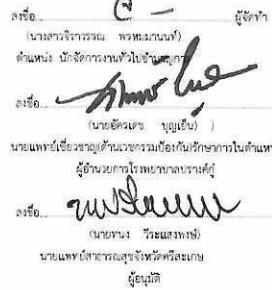 ลงชื่อ ผู้จัดทำ
(นางสาวจิราวรรณ พรหมมานนท์)
ตำแหน่ง นักจัดการงานทั่วไปชำนาญการ
ลงชื่อ
(นายอัครเดช บุญเย็น) )
นายแพทย์เชี่ยวชาญ(ด้านเวชกรรมป้องกัน)รักษาการในตำแหน่
ผู้อำนวยการโรงพยาบาลปรางค์กู่
ลงชื่อ
(นายทนง วีระแสงพงษ์)
นายแพทย์สาธารณสุขจังหวัดศรีสะเกษ
ผู้อนุมัติ